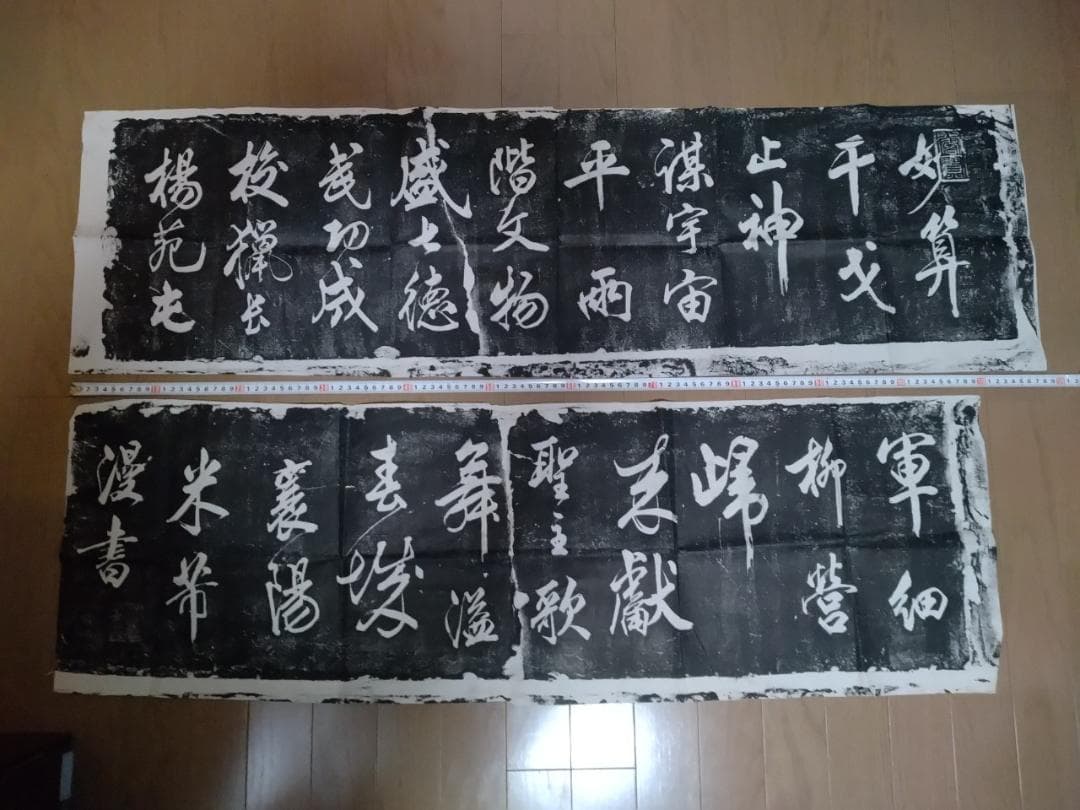 妙算
干戈
止神
謀宇宙
平兩
階文物
盛七德
武功成
校獵長
楊苑屯
軍細
柳營
歸
來獻
聖主歌
舞溢
春城
襄陽
米芾
漫書